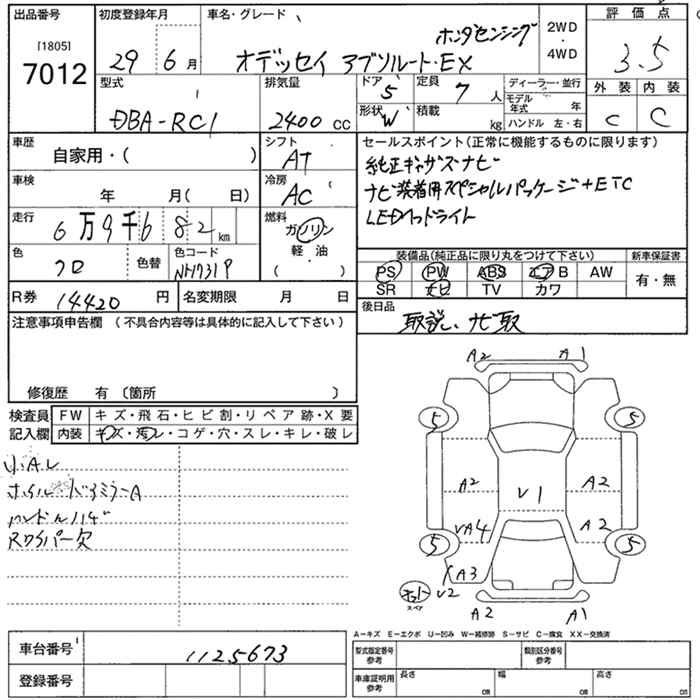 出品番号
[1805]
7012
初度登録年月
29 6月
車名・グレード
ホンダセンシング
オデッセイ アブソルート・EX
2WD
・
4WD
評価点
3.5
型式
DBA-RC1
排気量
2400 CC
ドア 5
定員 7 人
形状 W
積載 kg
ディーラー・並行
モデル年式 年
ハンドル 左・右
外装 内装
C C
車歴
自家用・( )
シフト
AT
車検
年 月( 日)
冷房
AC
走行
6万9千682km
燃料
ガソリン
軽・油
( )
色
クロ
色替
色コード
NH731P
R券 14420 円
名変期限 月 日
セールスポイント(正常に機能するものに限ります)
純正ギャザズナビ
ナビ装着用スペシャルパッケージ+ETC
LEDヘッドライト
装備品(純正品に限り丸をつけて下さい)
PS PW ABS エアB AW
SR ナビ TV カワ
新車保証書
有・無
後日品
取説、ナビ取
注意事項申告欄 (不具合内容等は具体的に記入して下さい)
修復歴 有〔箇所 〕
検査員記入欄
FW キズ・飛石・ヒビ割・リペア跡・X要
内装 キズ・汚レ・コゲ・穴・スレ・キレ・破レ
小A凹
ハンドルハゲ
Rワイパー欠
A2 A1
5 5
A2 V1 A2
VA4 A2
5 5
A3
U2
スペア
A2 A1
A-キズ E-エクボ U-凹み W-補修跡 S-サビ C-腐食 XX-交換済
車台番号 1125673
登録番号
型式指定番号 参考
類別区分番号 参考
車庫証明用 参考
長さ cm 幅 cm 高さ cm